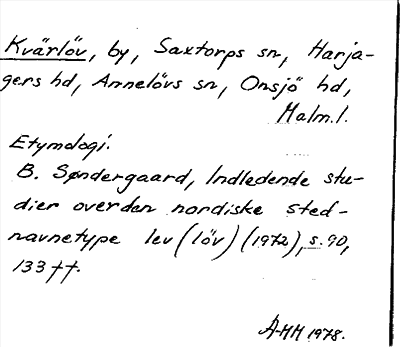 Kvärlöv, by, Saxtorps sn, Harja-
gers hd, Annelövs sn, Onsjö hd,
Malm.l.
Etymologi.
B. Søndergaard, Indledende stu-
dier over den nordiske sted-
navnetype lev (löv) (1972), s. 90,
133 ff.
ÅHH 1978.